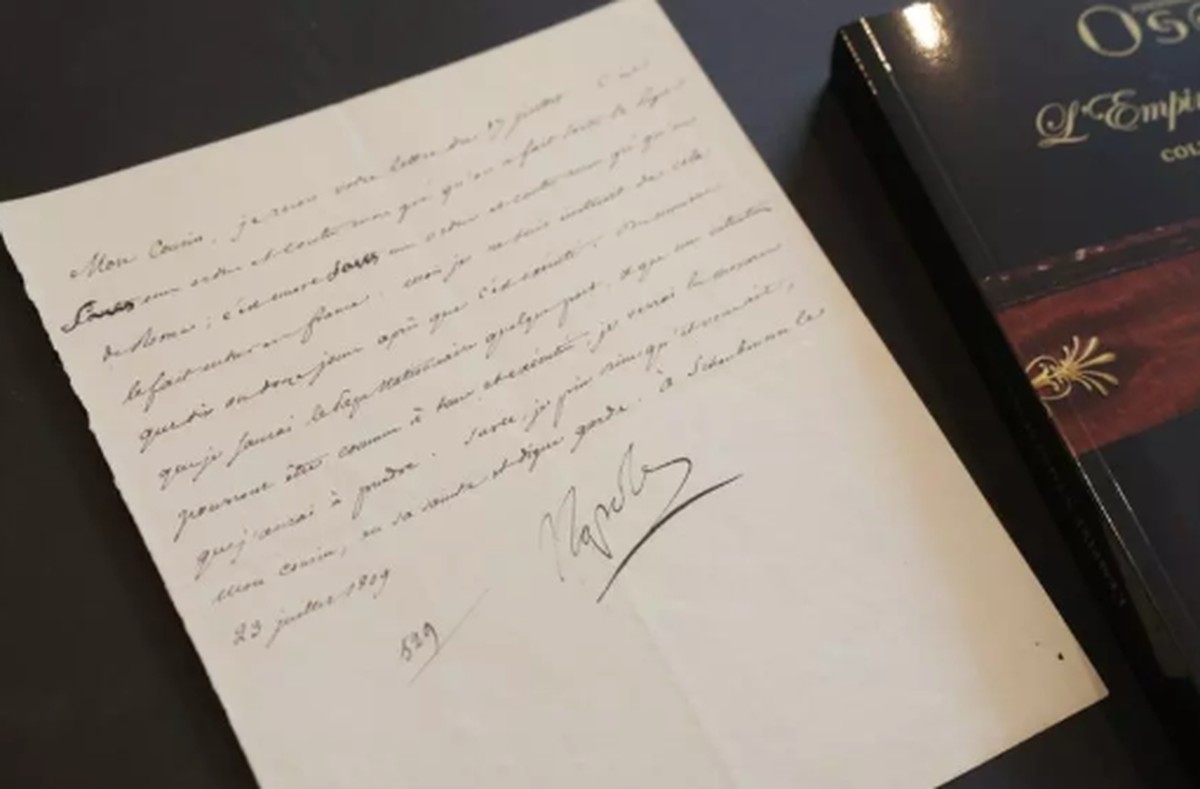 Mon Cousin, je reçois votre lettre du 17 juillet. C'est
Sans mon ordre et contre mon gré qu'on a fait sortir le Pape
de Rome; c'est encore Sans mon ordre et contre mon gré qu'on
le fait entrer en france. mais je ne suis instruit de cela
que dix ou douze jours après que c'est exécuté. Du moment
que je saurai le Pape Stationnaire quelque part, et que mes intentions
pourront être connues à tems et exécutées, je verrai les mesures
que j'aurai à prendre. Surce, je prie Dieu qu'il vous ait,
mon cousin, en sa sainte et digne garde. à Schönbrunn le
23 juillet 1809
Napole
529
Os
L'Empi
COL